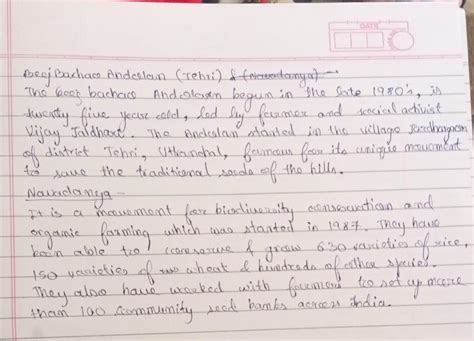 DATE
Beej Bachao Andolan (Tehri) & (Navadanya) -
The beej bachao Andolan begun in the late 1980's, is
twenty five year old, led by farmer and social activist
Vijay Jaldhari. The Andolan started in the village Jardhargaon
of district Tehri, Uttranchal, famous for its unique movement
to save the traditional seeds of the hills.
Navadanya -
It is a movement for biodiversity conservation and
organic farming which was started in 1987. They have
been able to conserve & grow 630 varieties of rice,
150 varieties of wheat & hundreds of other species.
They also have worked with farmers to set up more
than 100 community seed banks across India.